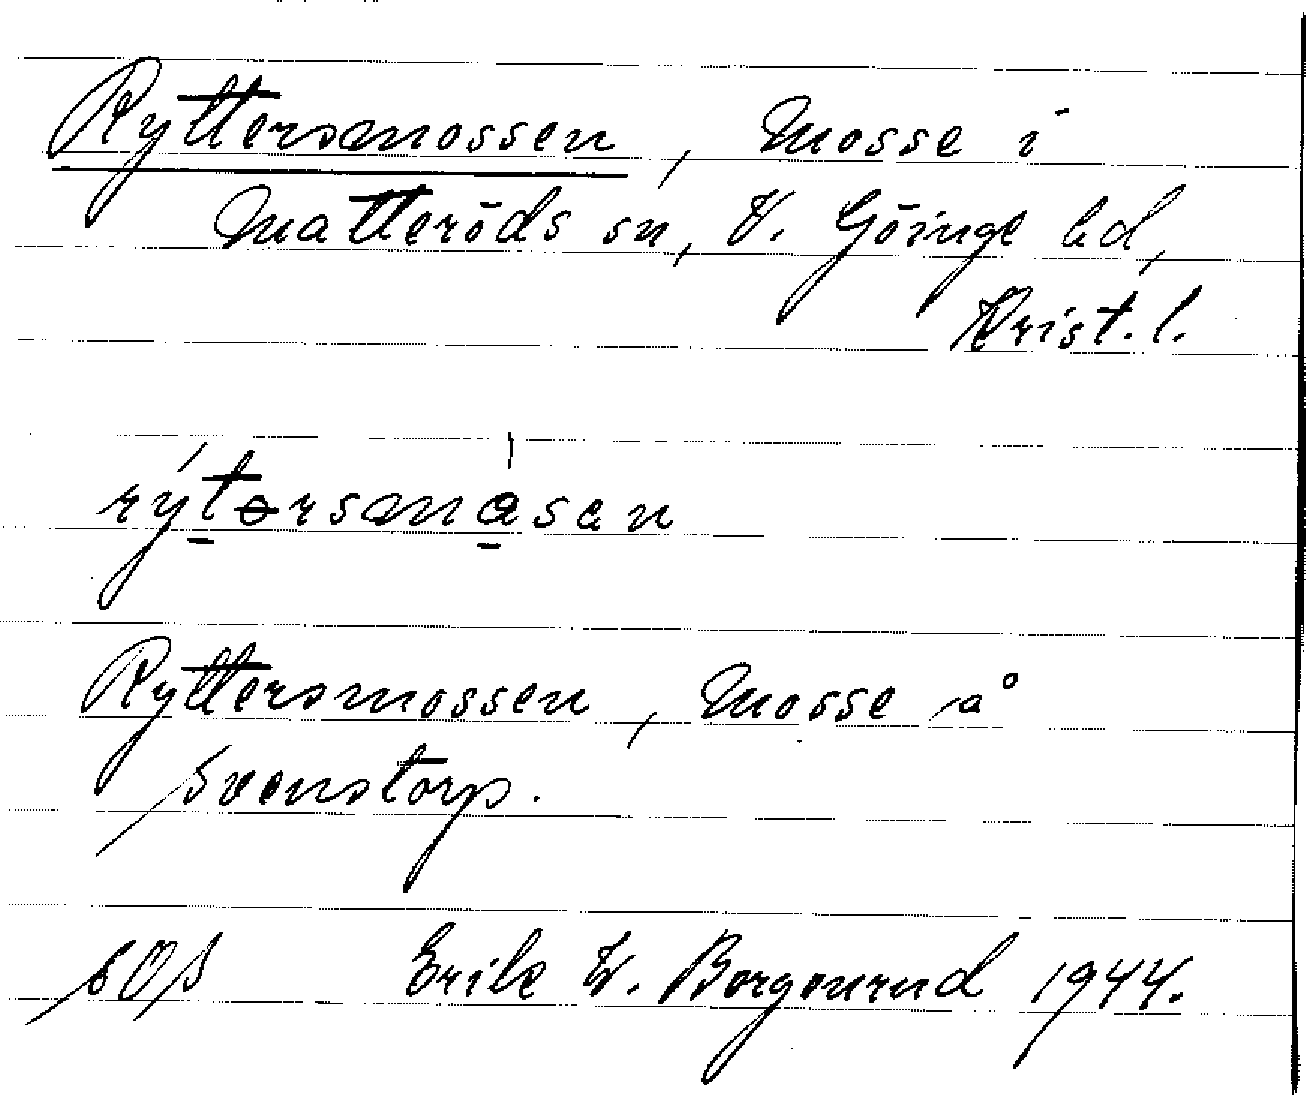 Ryttersmossen, Mosse i
Matteröds sn, V. Göinge hd,
Krist. l.
rýtərsmåsen
Ryttersmossen, Mosse å
Svenstorp.
SOS Erik W. Borgenrud 1944.